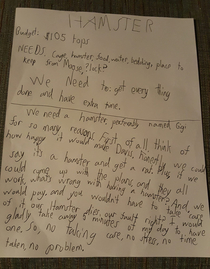 HAMSTER
Budget: $105 tops
NEEDS Cage, hamster, food, water, bedding, place to
keep from Moose, luck?
We Need to: get every thing
done and have extra time.
We need a hamster, preferably named Gigi
for so many reasons. First of all think of
how happy it would make Davis, honestly we could
say its a hamster and get a rat. Plus it we
could came up with the plans, and they all
work, whats wrong with taking a hamster? And we
would pay, and you wouldn't have to take care
of it our Hamster After our fault right? I would
gladly take away 5 minutes of my day to have
one. So, no taking care, no stres, no time
taken, no problem.